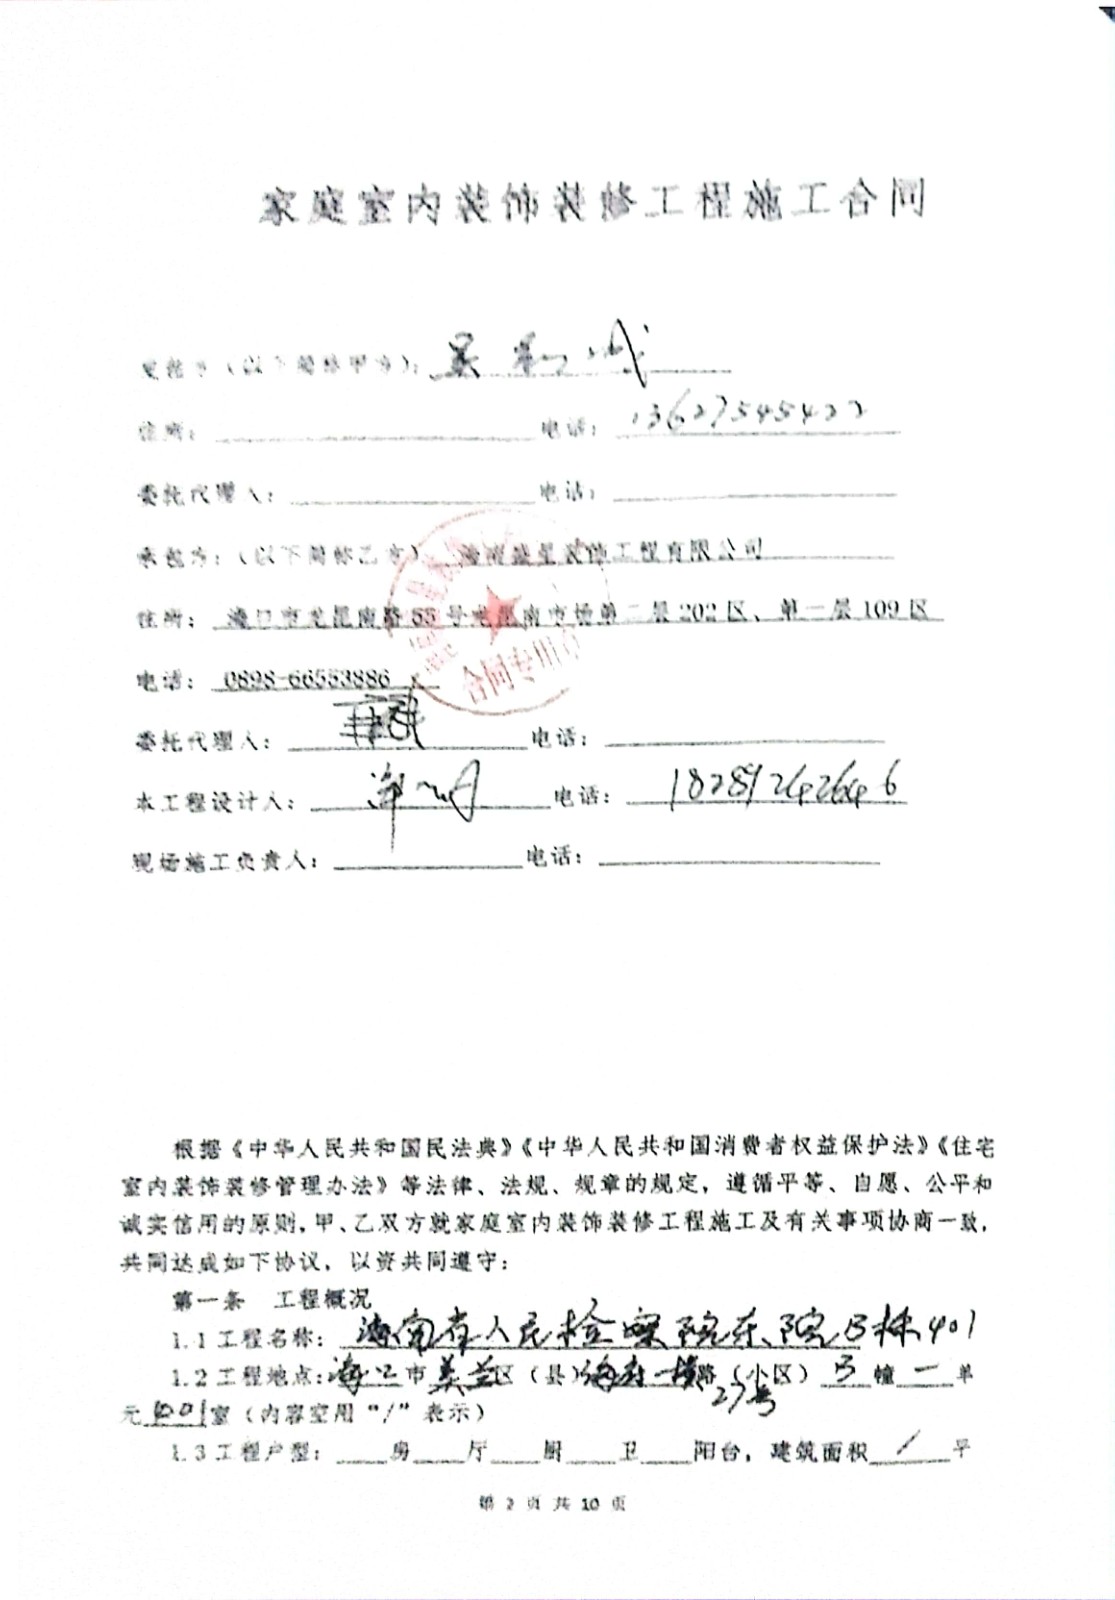 家庭室内装饰装修工程施工合同
发包方（以下简称甲方）：吴
住所： 电话：13627545422
委托代理人： 电话：
承包方：（以下简称乙方）海南星装饰工程有限公司
住所：海口市龙昆南路55号龙昆南市场第二层202区、第一层109区
电话：0898-66553886
合同专用章
委托代理人： 电话：
本工程设计人： 电话：18289242646
现场施工负责人： 电话：
根据《中华人民共和国民法典》《中华人民共和国消费者权益保护法》《住宅
室内装饰装修管理办法》等法律、法规、规章的规定，遵循平等、自愿、公平和
诚实信用的原则，甲、乙双方就家庭室内装饰装修工程施工及有关事项协商一致，
共同达成如下协议，以资共同遵守：
第一条 工程概况
1.1工程名称：海南省人民检察院东院B栋401
1.2工程地点：海口市美兰区（县）海府一横路（小区）27号 B幢一单
元401室（内容空用“/”表示）
1.3工程户型：____房____厅____厨____卫____阳台，建筑面积 / 平
第 2 页 共 10 页